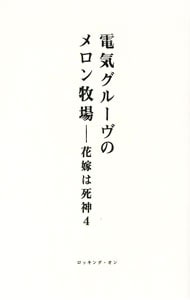 電気グルーヴの
メロン牧場——花嫁は死神4
ロッキング・オン